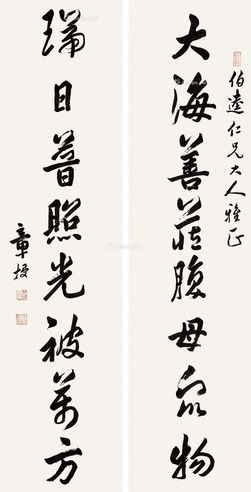 伯遠仁兄大人雅正
大海善藏腹母眾物
瑞日普照光被萬方
章梫